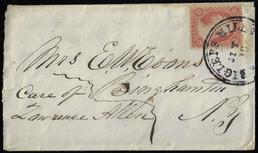 Mrs E. M. Evans
Care of Binghamton
Lawrence Allen N.Y